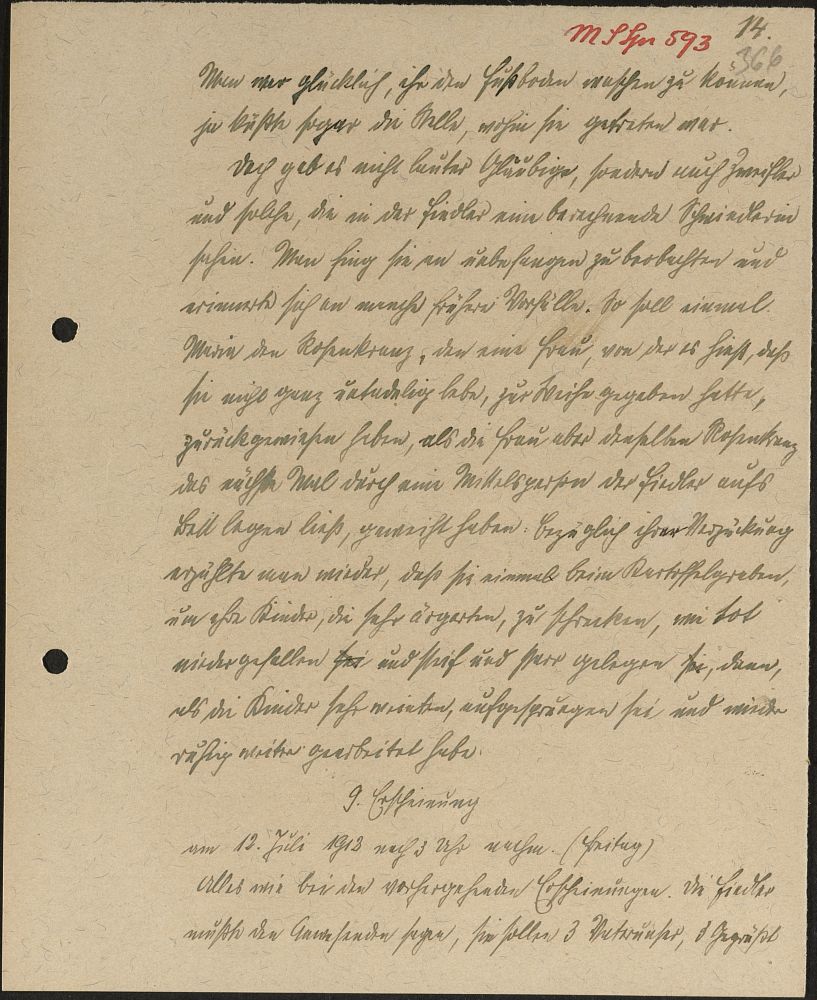 MSgr 593
14.
366
Man war glücklich, ihr den Fußboden waschen zu können,
ja küßte sogar die Stelle, wohin sie getreten war.
Doch gab es nicht lauter Gläubige, sondern auch Zweifler
und solche, die in der Fiedler eine berechnende Schwindlerin
sahen. Man fing sie an unbefangen zu beobachten und
erinnerte sich an manche frühere Vorfälle. So soll einmal
Maria den Rosenkranz, den eine Frau, von der es hieß, daß
sie nicht ganz untadelig lebe, zur Weihe gegeben hatte,
zurückgewiesen haben, als die Frau aber denselben Rosenkranz
das nächste Mal durch eine Mittelsperson der Fiedler aufs
Bett legen ließ, geweiht haben. Bezüglich ihrer Verzückung
erzählte man wieder, daß sie einmal beim Kartoffelgraben,
um ihre Kinder, die sehr ärgerten, zu schrecken, wie tot
niedergefallen sei und steif und starr gelegen sei, dann,
als die Kinder sehr weinten, aufgesprungen sei und wieder
ruhig weiter gearbeitet habe.
9. Erscheinung
am 12. Juli 1912 nach 3 Uhr nachm. (Freitag)
Alles wie bei den vorhergehenden Erscheinungen. Die Fiedler
mußte den Anwesenden sagen, sie sollen 3 Vaterunser, 3 Gegrüßt